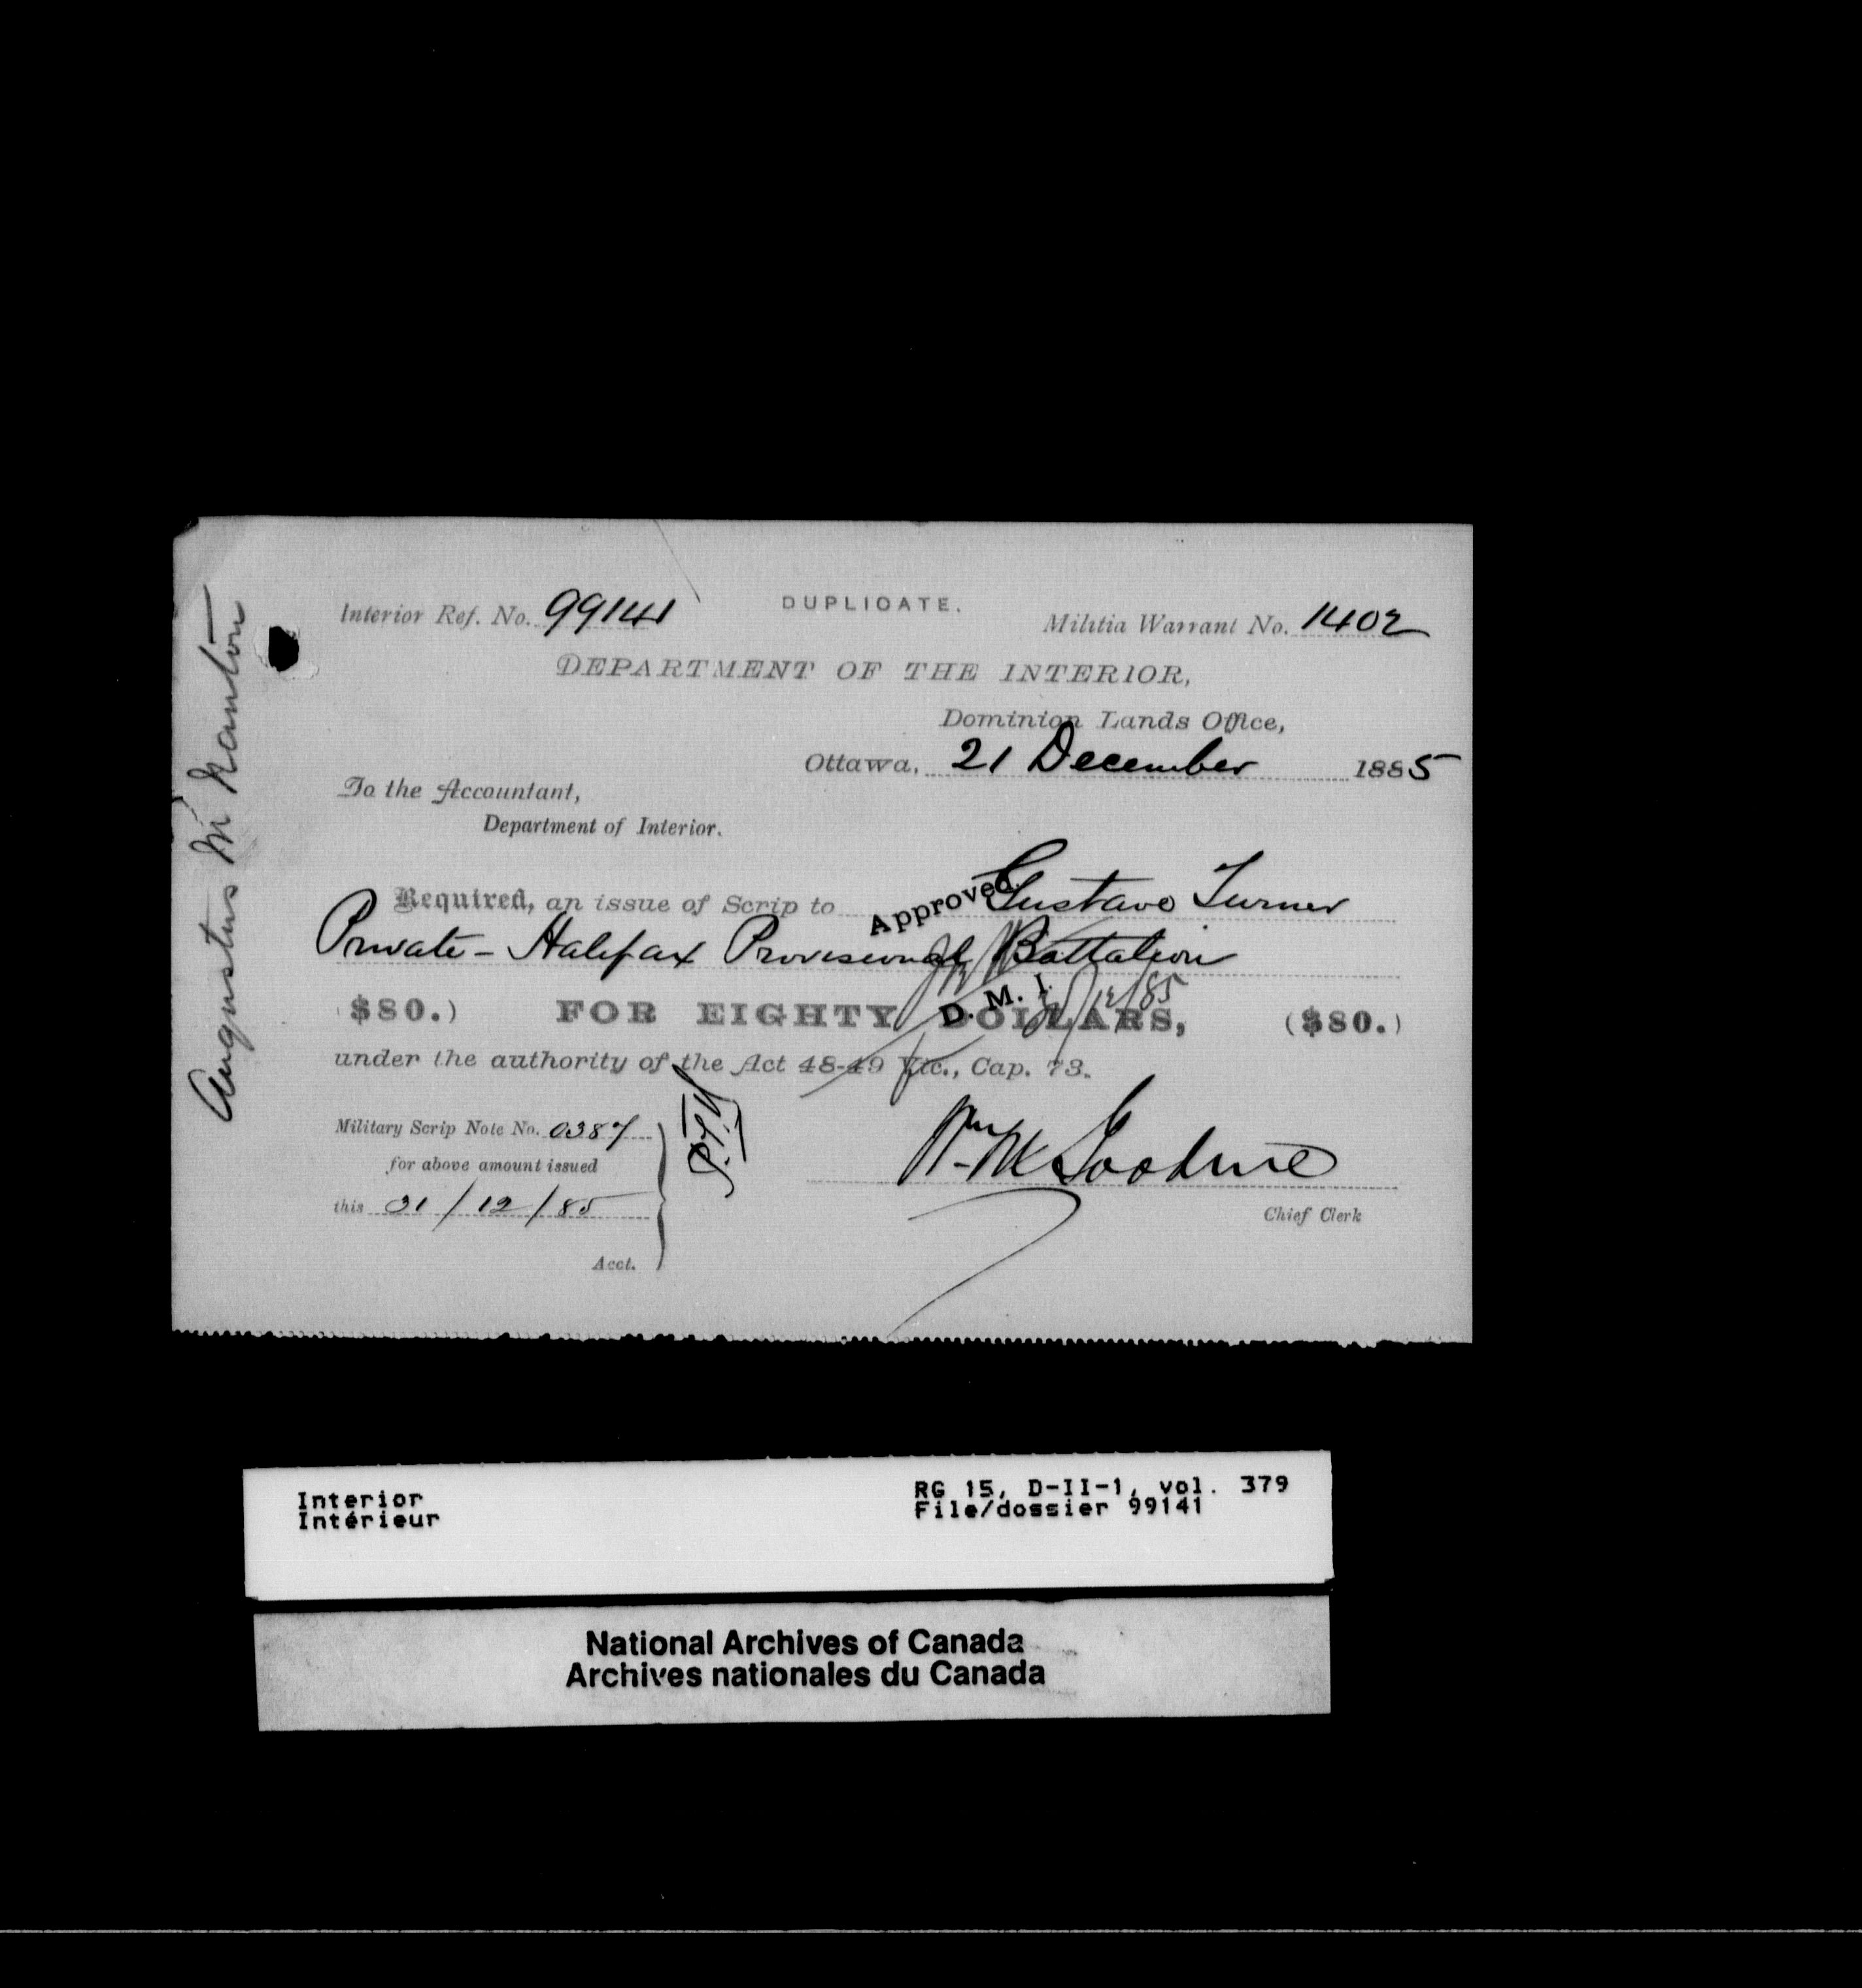 Interior Ref. No. 99141
DUPLICATE.
Militia Warrant No. 1402
DEPARTMENT OF THE INTERIOR,
Dominion Lands Office,
Ottawa, 21 December 1885
To the Accountant,
Department of Interior.
Required, an issue of Scrip to Gustave Turner
Approved.
Private - Halifax Provisional Battalion
D. M. I.
$80.) FOR EIGHTY DOLLARS, ($80.)
under the authority of the Act 48-49 Vic., Cap. 73.
Military Scrip Note No. 0387
for above amount issued
this 31/12/85
Acct.
Chief Clerk
Augustus
Interior
Intérieur
RG 15, D-II-1, vol. 379
File/dossier 99141
National Archives of Canada
Archives nationales du Canada